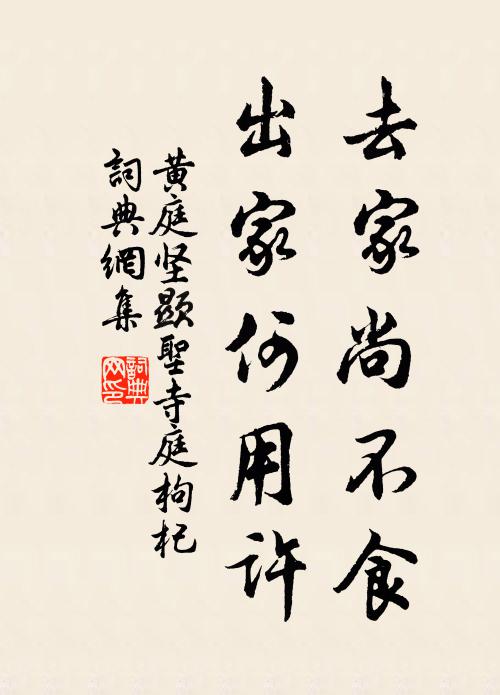 去家尚不食
出家何用許
黄庭坚顯聖寺庭枸杞
詞典網集
詞典网印